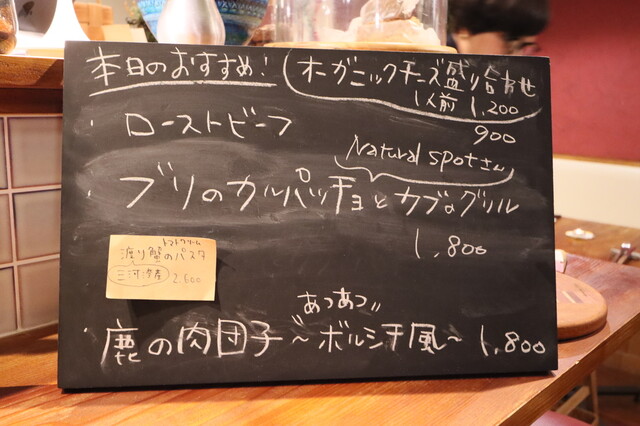 本日のおすすめ!
オーガニックチーズ盛り合わせ
1人前 1,200
・ローストビーフ 900
Natural spotさん
・ブリのカルパッチョとカブのグリル
1,800
トマトクリーム
渡り蟹のパスタ
三河湾産 2,600
あつあつ
・鹿の肉団子 〜ボルシチ風〜 1,800